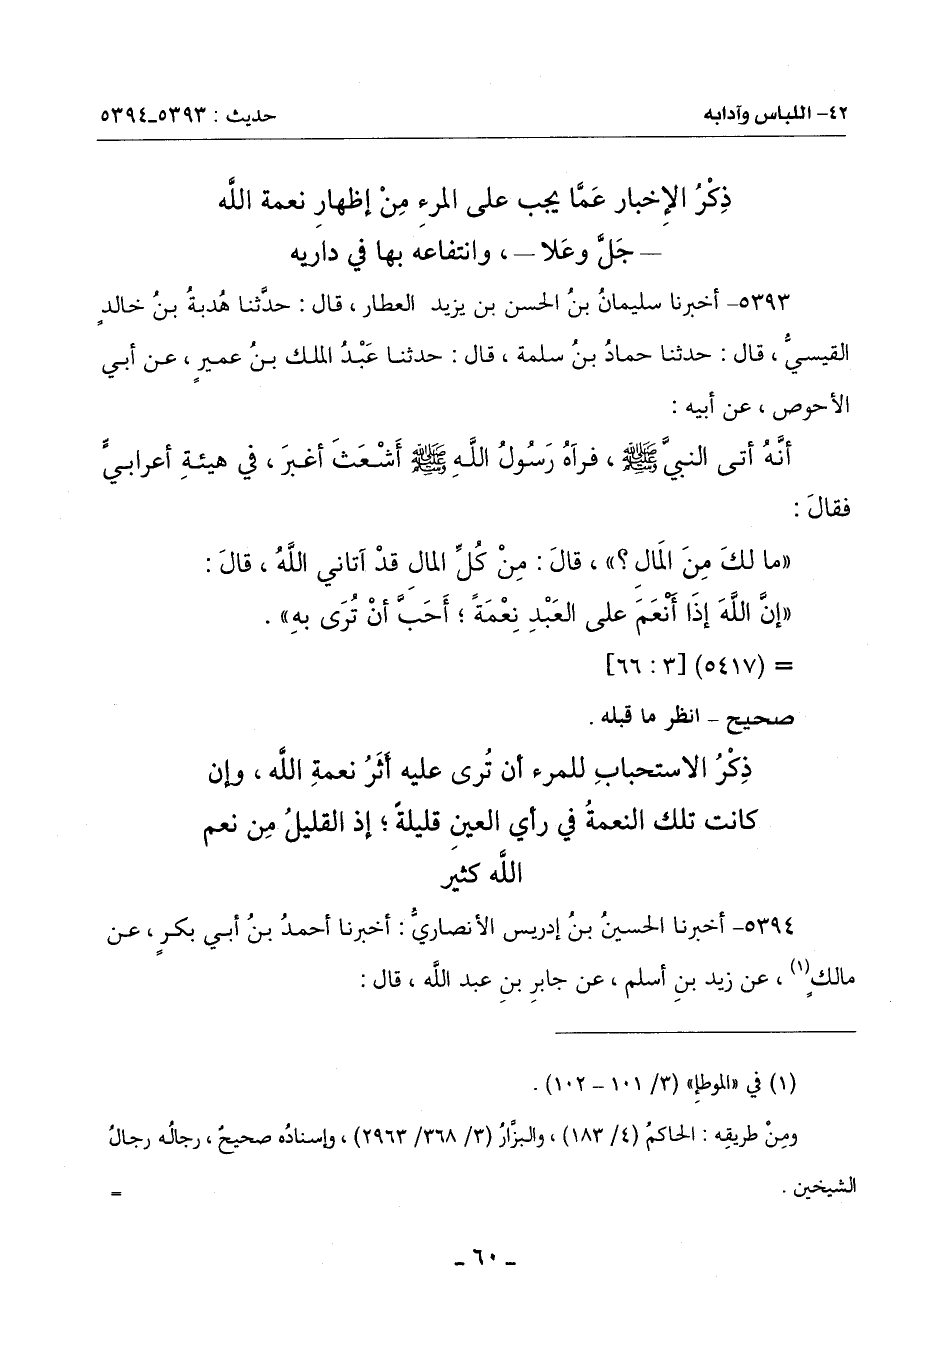 ٤٢- اللباس وآدابه
حديث : ٥٣٩٣-٥٣٩٤
ذِكْرُ الإخبار عَمَّا يجب على المرءِ مِنْ إظهارِ نعمة اللَّه
– جَلَّ وعَلا – ، وانتفاعه بها في داريه
٥٣٩٣- أخبرنا سليمانُ بنُ الحسن بن يزيد العطار ، قال : حدَّثنا هُدبةُ بنُ خالدٍ
القيسيُّ ، قال : حدثنا حمادُ بنُ سلمة ، قال : حدثنا عَبْدُ الملك بنُ عميرٍ ، عن أبي
الأحوص ، عن أبيه :
أنَّهُ أتى النبيَّ ﷺ ، فرآهُ رَسُولُ اللَّهِ ﷺ أَشْعَثَ أغبرَ ، في هيئةِ أعرابيٍّ
فقالَ :
«ما لكَ مِنَ المَالِ ؟» ، قالَ : مِنْ كُلِّ المالِ قدْ آتاني اللَّهُ ، قالَ :
«إنَّ اللَّهَ إذَا أَنْعَمَ على العَبْدِ نِعْمَةً ؛ أَحَبَّ أنْ تُرَى بهِ» .
= (٥٤١٧) [٣ : ٦٦]
صحيح - انظر ما قبله .
ذِكْرُ الاستحبابِ للمرء أن تُرى عليه أَثَرُ نعمةِ اللَّه ، وإن
كانت تلك النعمةُ في رأي العينِ قليلةً ؛ إذ القليلُ مِن نعم
اللَّه كثير
٥٣٩٤- أخبرنا الحسينُ بنُ إدريس الأنصاريُّ : أخبرنا أحمدُ بنُ أبي بكرٍ ، عن
مالكٍ(١) ، عن زيد بنِ أسلم ، عن جابرِ بنِ عبد اللَّه ، قال :
(١) في «الموطإ» (٣/ ١٠١ - ١٠٢) .
ومِنْ طريقِه : الحاكمُ (٤/ ١٨٣) ، والبزَّارُ (٣/ ٣٦٨/ ٢٩٦٣) ، وإسنادُه صحيحٌ ، رجالُه رجالُ
الشيخين . =
- ٦٠ -